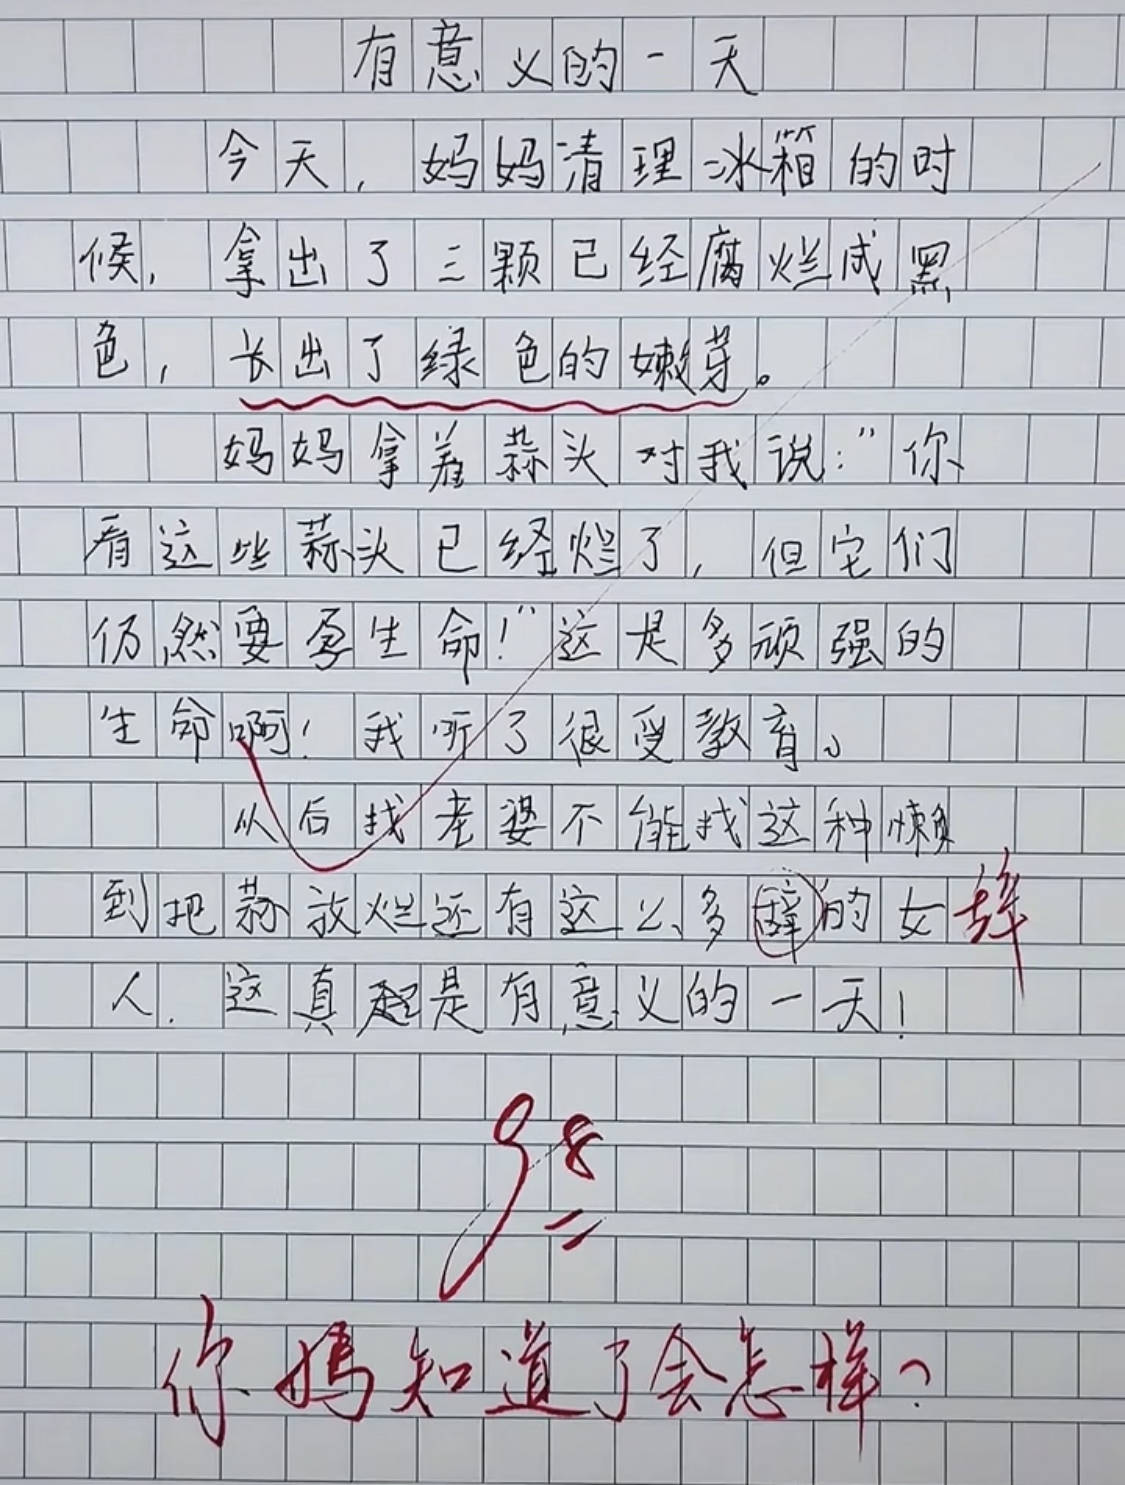 有意义的一天
今天，妈妈清理冰箱的时
候，拿出了三颗已经腐烂成黑
色，长出了绿色的嫩芽。
妈妈拿着蒜头对我说："你
看这些蒜头已经烂了，但它们
仍然要孕生命！"这是多顽强的
生命啊！我听了很受教育。
从后找老婆不能找这种懒
到把蒜放烂还有这么多的女
辞
人．这真是有意义的一天！
98
你妈知道了会怎样？